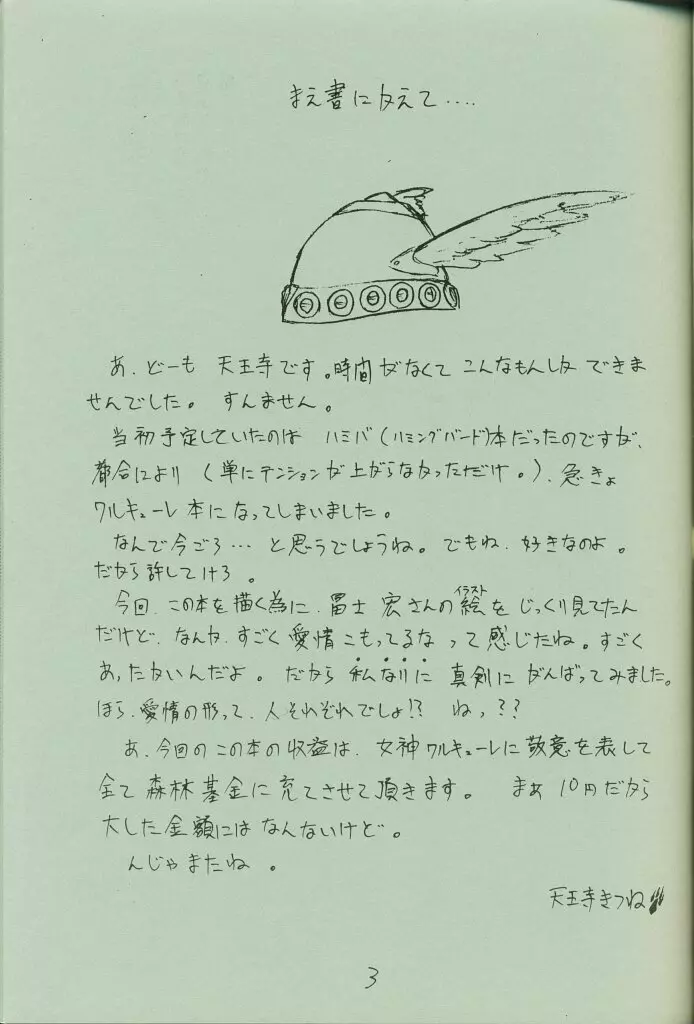 まえ書に変えて‥‥
あ、どーも 天王寺です。時間がなくて こんなもんしか できま
せんでした。 すんません。
当初予定していたのは ハミバ(ハミングバード)本だったのですが、
都合により (単にテンションが上がらなかっただけ。)、急きょ
ワルキューレ 本になってしまいました。
なんで今ごろ… と思うでしょうね。でもね、好きなのよ。
だから許してけろ。
今回、この本を描く為に、冨士 宏さんの絵をじっくり見てたん
イラスト
だけど、なんか、すごく愛情こもってるなって感じたね。すごく
あったかいんだよ。だから 私なりに 真剣に がんばってみました。
ほら、愛情の形って、人それぞれでしょ!? ねっ??
あ、今回のこの本の収益は、女神ワルキューレに敬意を表して
全て 森林基金に充てさせて頂きます。 まぁ 10円だから
大した金額にはなんないけど。
んじゃまたね。
天王寺きつね
3